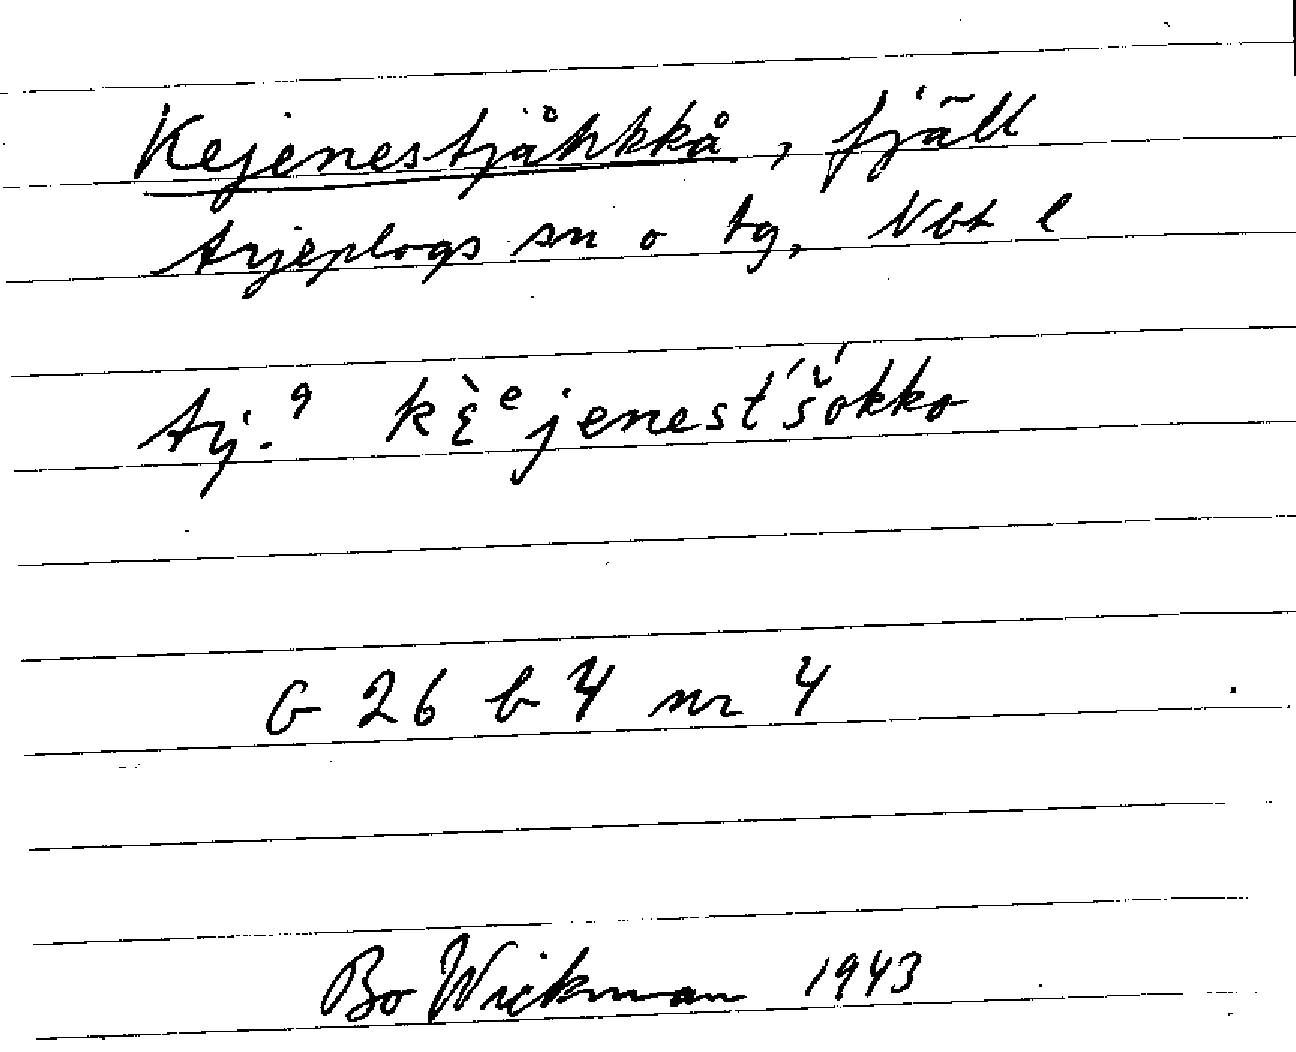 Kejenestjåhkkå, fjäll
Arjeplogs sn o tg, Nbt l
Arj.9 kὲᵉjenest́š́okko
G 26 b 4 nr 4
Bo Wickman 1943